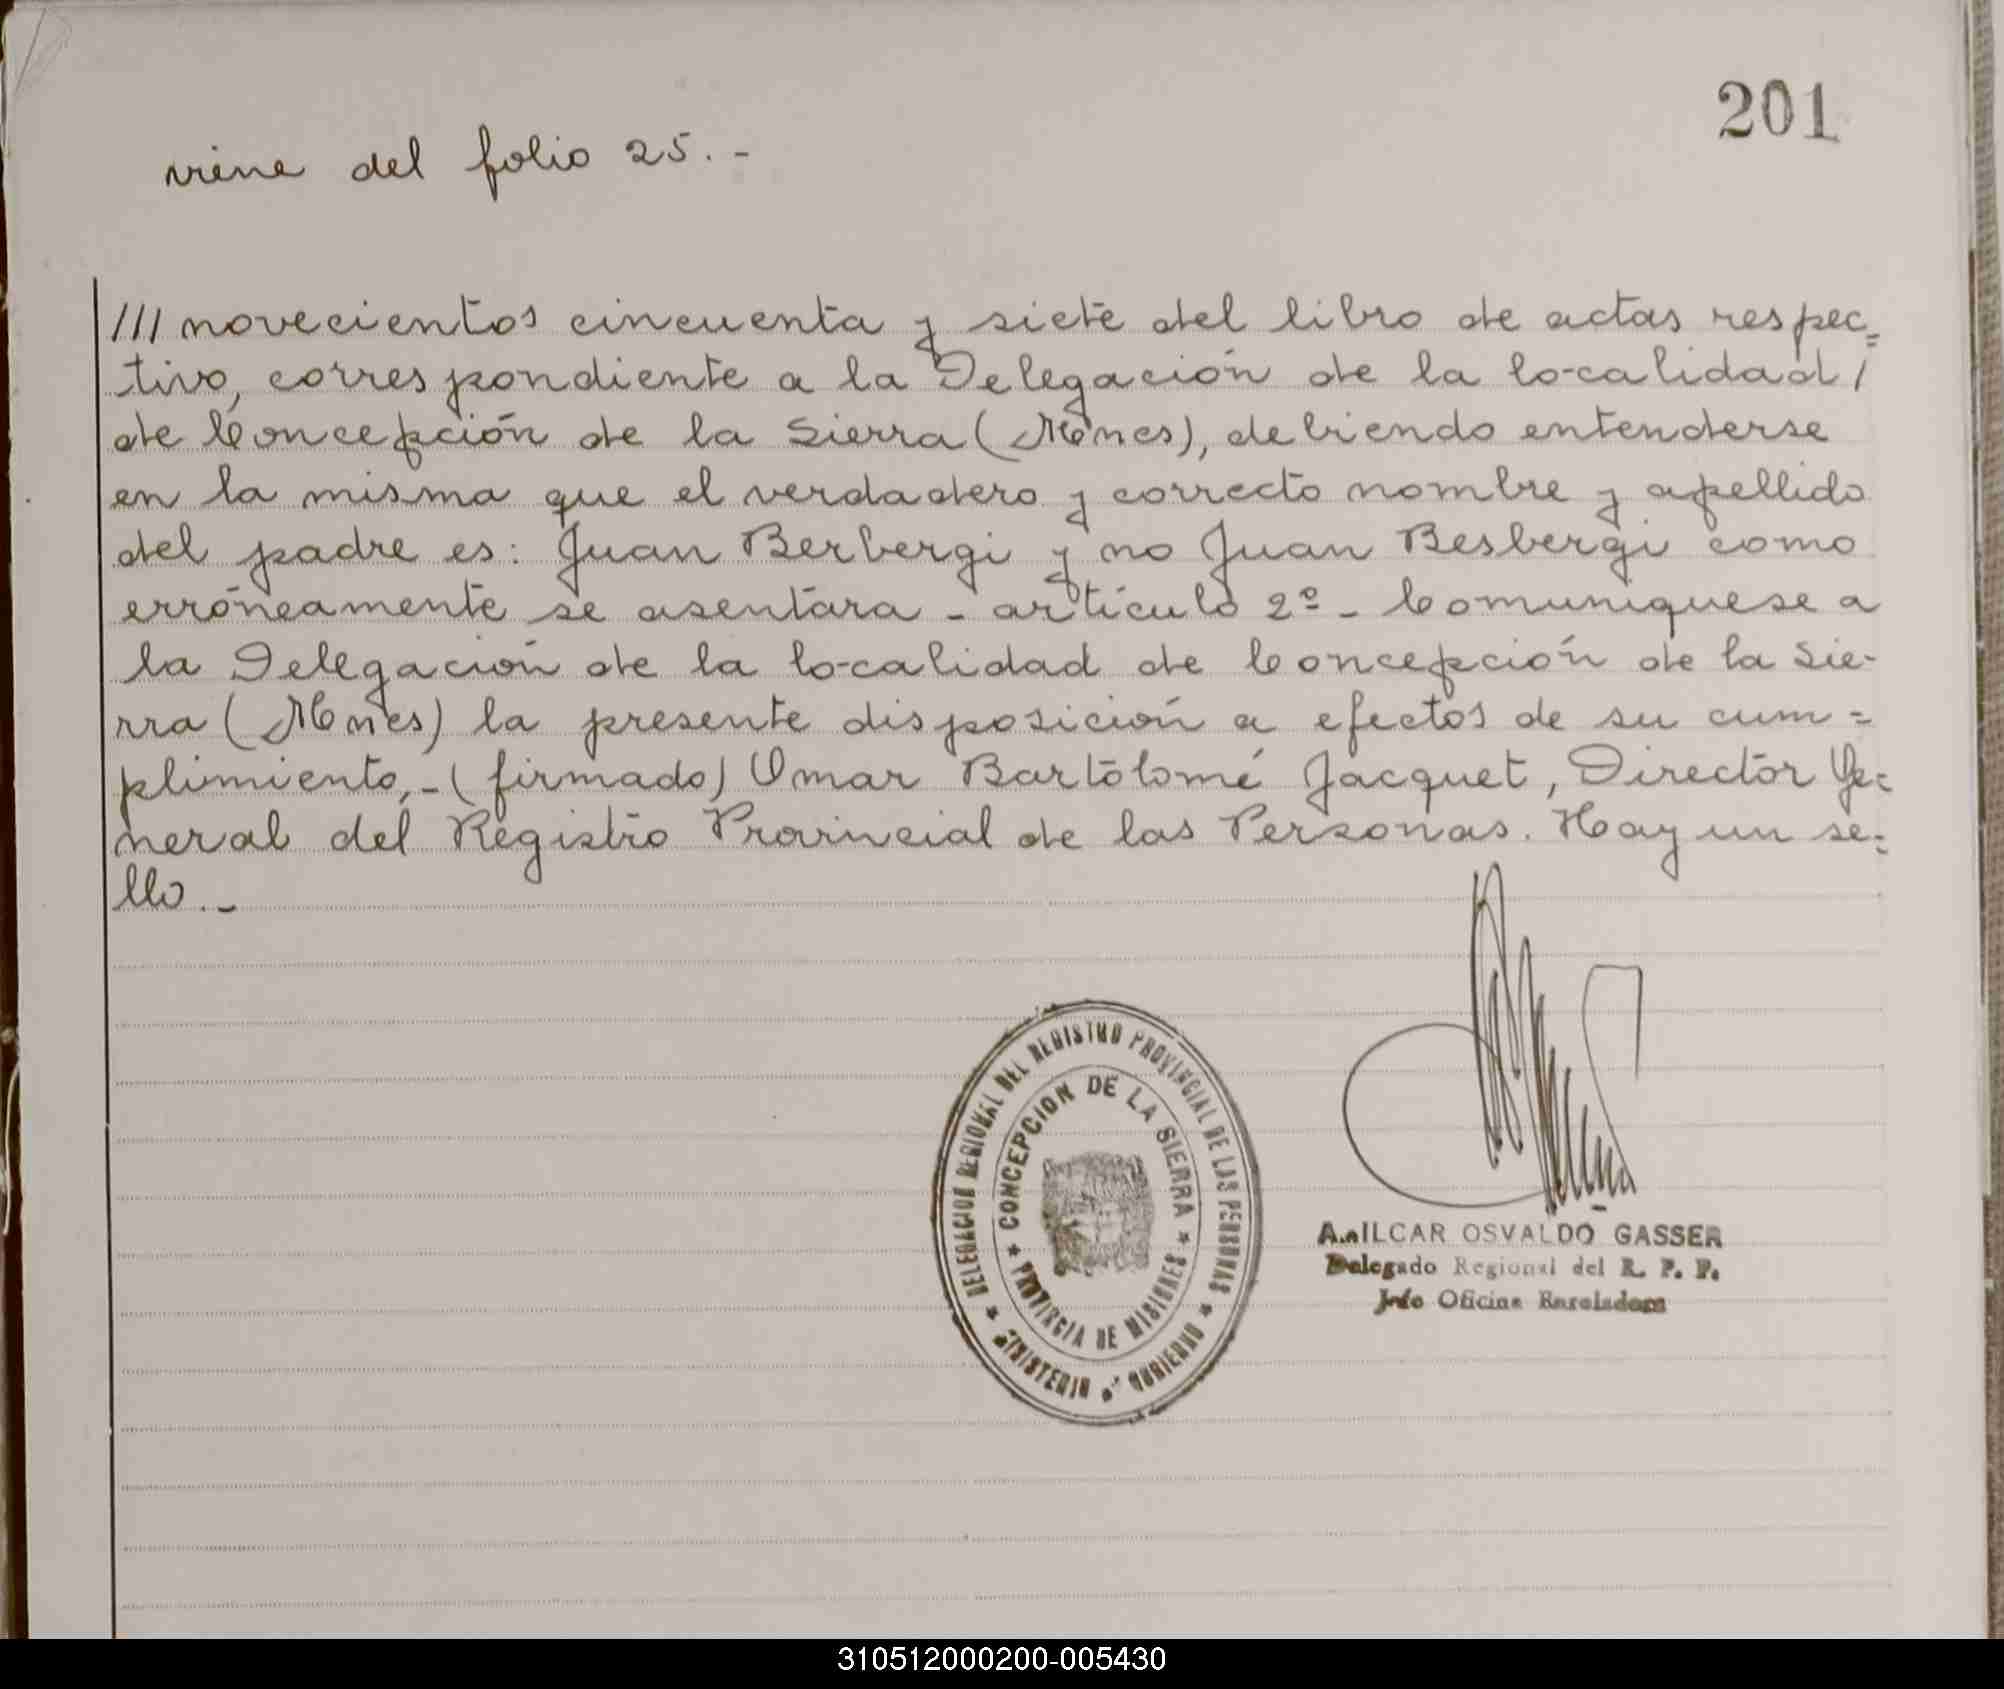 201
viene del folio 25.-
/// novecientos cincuenta y siete del libro de actas respec=
tivo, correspondiente a la Delegación de la localidad /
de Concepción de la Sierra (Mnes), debiendo entenderse
en la misma que el verdadero y correcto nombre y apellido
del padre es: Juan Berbergi y no Juan Besbergi como
erróneamente se asentara - artículo 2º - Comuniquese a
la Delegación de la localidad de Concepción de la Sie-
rra (Mnes) la presente disposición a efectos de su cum=
plimiento,-(firmado) Omar Bartolomé Jacquet, Director Ge=
neral del Registro Provincial de las Personas. Hay un se=
llo.-
DELEGACION REGIONAL DEL REGISTRO PROVINCIAL DE LAS PERSONAS
* MINISTERIO DE GOBIERNO *
CONCEPCION DE LA SIERRA
* PROVINCIA DE MISIONES *
AMILCAR OSVALDO GASSER
Delegado Regional del R. P. P.
Jefe Oficina Enroladora
310512000200-005430